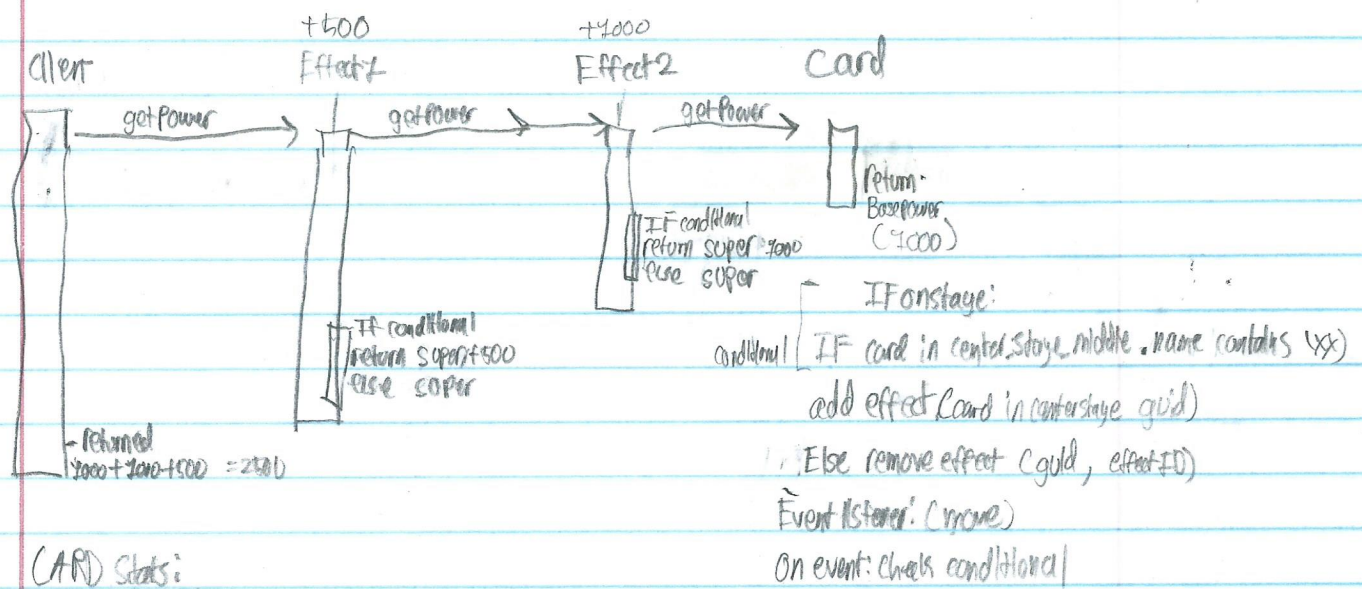 +500
+1000
Client
Effect1
Effect2
Card
getPower
getPower
getPower
return
Basepower
(1000)
IF conditional
return super 1000
else super
If conditional
return super+500
else super
- returned
1000+1000+500 = 2500
IF onstage:
conditional
IF card in center_stage_middle.name contains (XX)
add effect (card in centerstage guid)
Else remove effect (guid, effectID)
Event listener: (move)
On event: check conditional
CARD Stats: